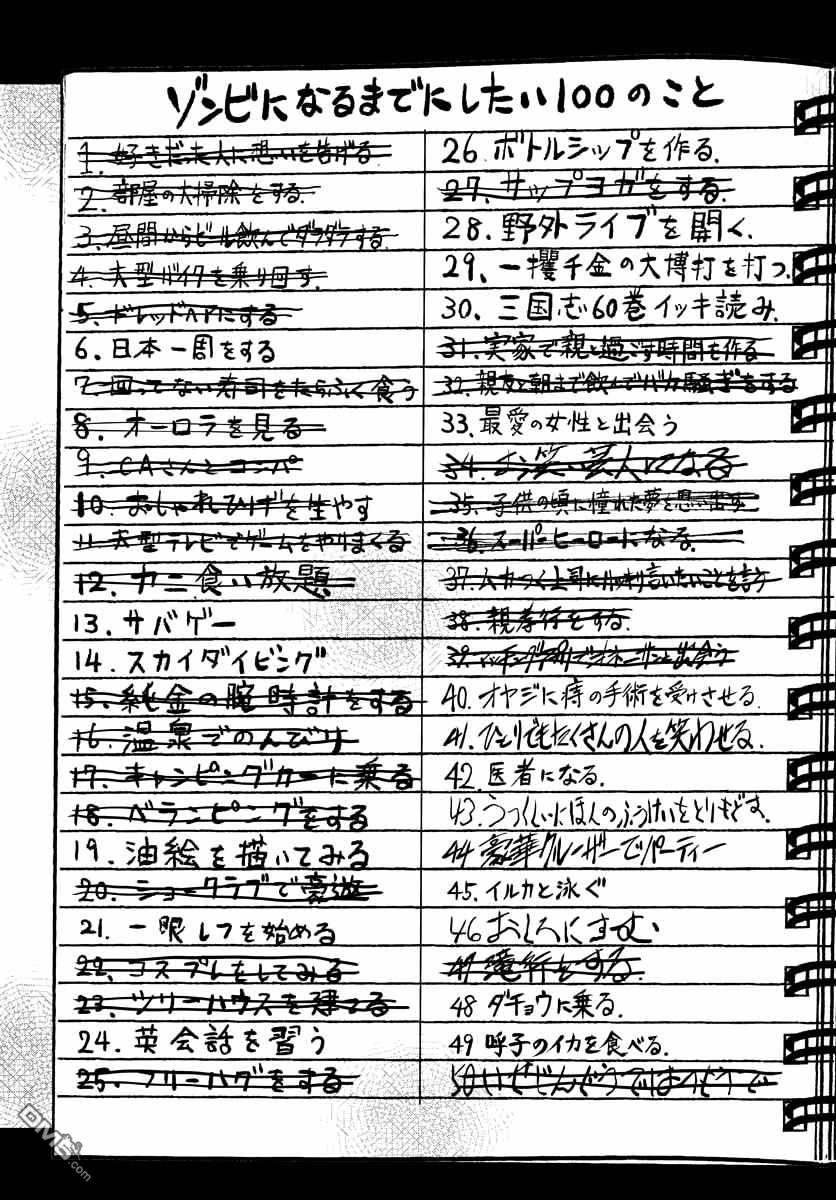 ゾンビになるまでにしたい100のこと
1. 好きだった人に想いを告げる
2. 部屋の大掃除をする.
3. 昼間からビール飲んでダラダラする
4. 大型バイクを乗り回す.
5. ドレッドヘアにする
6. 日本一周をする
7. 回ってない寿司をたらふく食う
8. オーロラを見る
9. CAさんとコンパ
10. おしゃれひげを生やす
11 大型テレビでゲームをやりまくる
12. カニ食い放題
13. サバゲー
14. スカイダイビング
15. 純金の腕時計をする
16. 温泉でのんびり
17. キャンピングカーに乗る
18. ベランピングをする
19. 油絵を描いてみる
20. ショークラブで豪遊
21. 一眼レフを始める
22. コスプレをしてみる
23. ツリーハウスを建てる
24. 英会話を習う
25. フリーハグをする
26. ボトルシップを作る.
27. サップヨガをする.
28. 野外ライブを開く.
29、一攫千金の大博打を打つ.
30. 三国志60巻イッキ読み.
31. 実家で親と過ごす時間を作る
32. 親友と朝まで飲んでバカ騒ぎをする
33. 最愛の女性と出会う
34. お笑い芸人になる
35. 子供の頃に憧れた夢を思い出す
36. スーパーヒーローになる.
37. ムカつく上司にハッキリ言いたいことを言う
38. 親孝行をする.
39. マッチングアプリでオネーサンと出会う
40. オヤジに痔の手術を受けさせる.
41. ひとりでもたくさんの人を笑わせる.
42. 医者になる.
43. うつくしいにほんのふうけいをとりもどす.
44 豪華クルーザーでパーティー
45. イルカと泳ぐ
46 おしろにすむ
47 滝行をする.
48 ダチョウに乗る.
49 呼子のイカを食べる.
50
DM5
.com